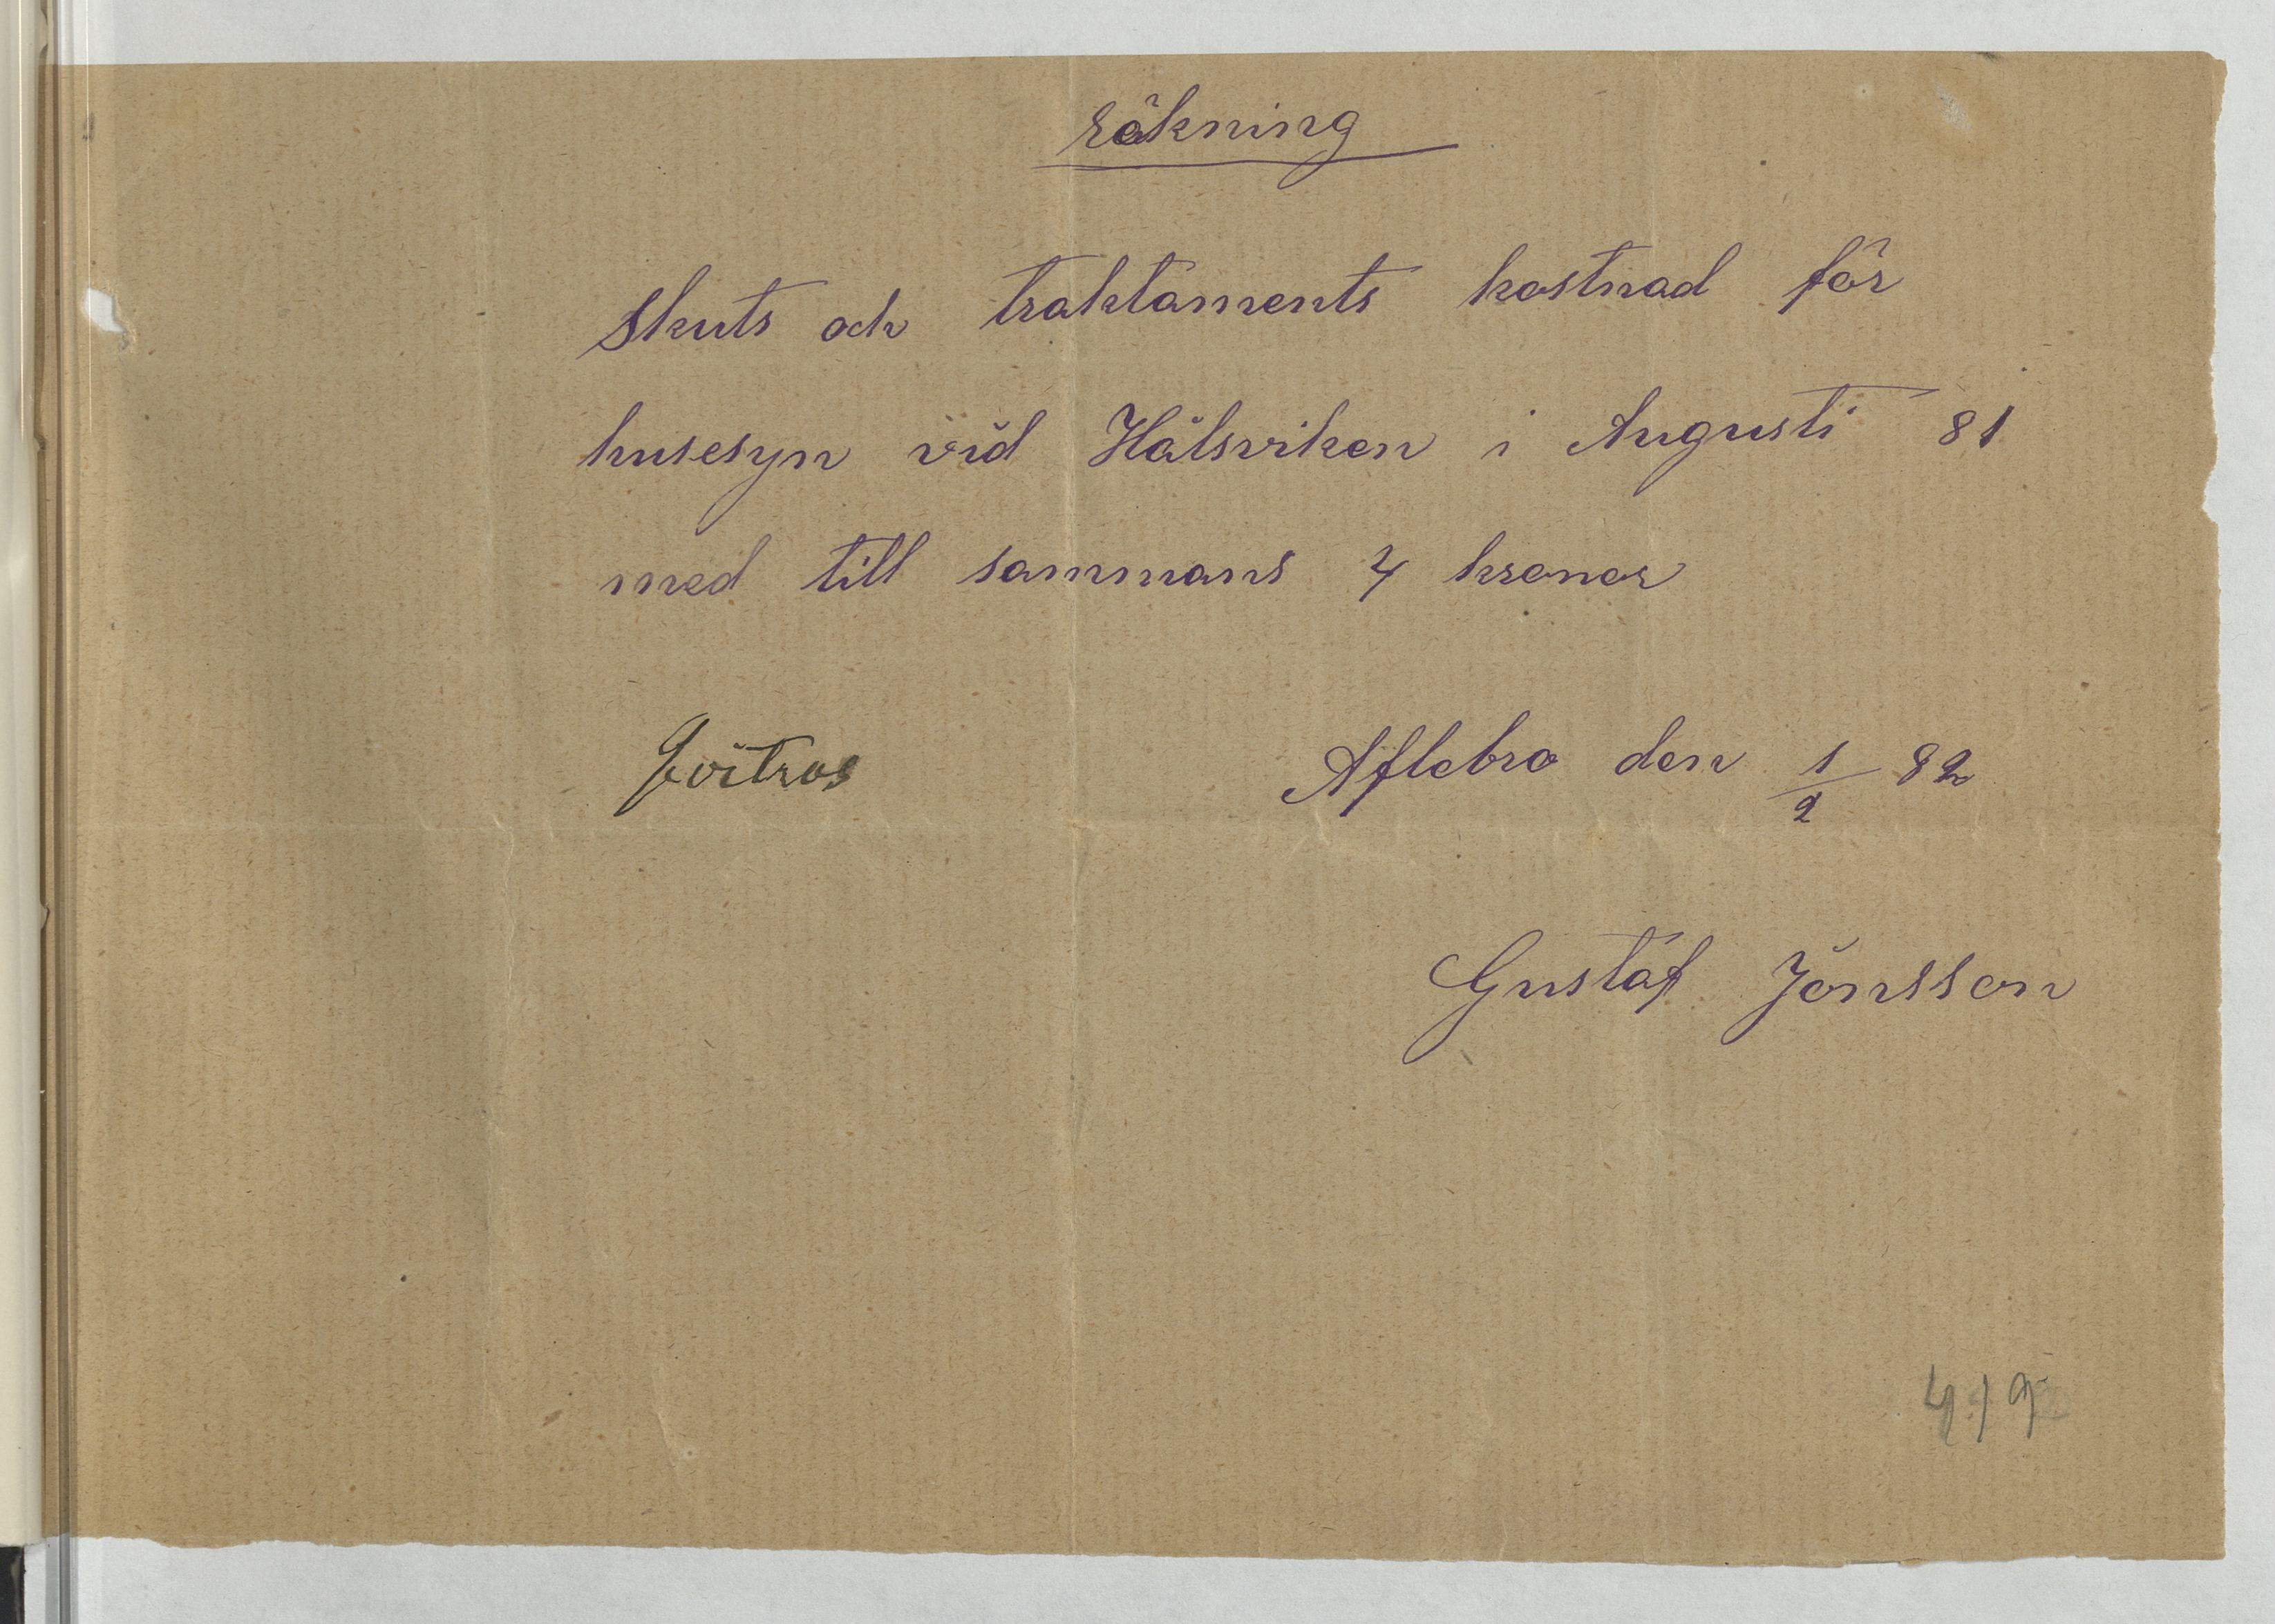 räkning
Skuts och traktaments kostnad för
husesyn vid Hälsviken i Augusti 81
med till sammans 4 kronor
Aflebro den 1/2 82
Gustaf Jönsson
419